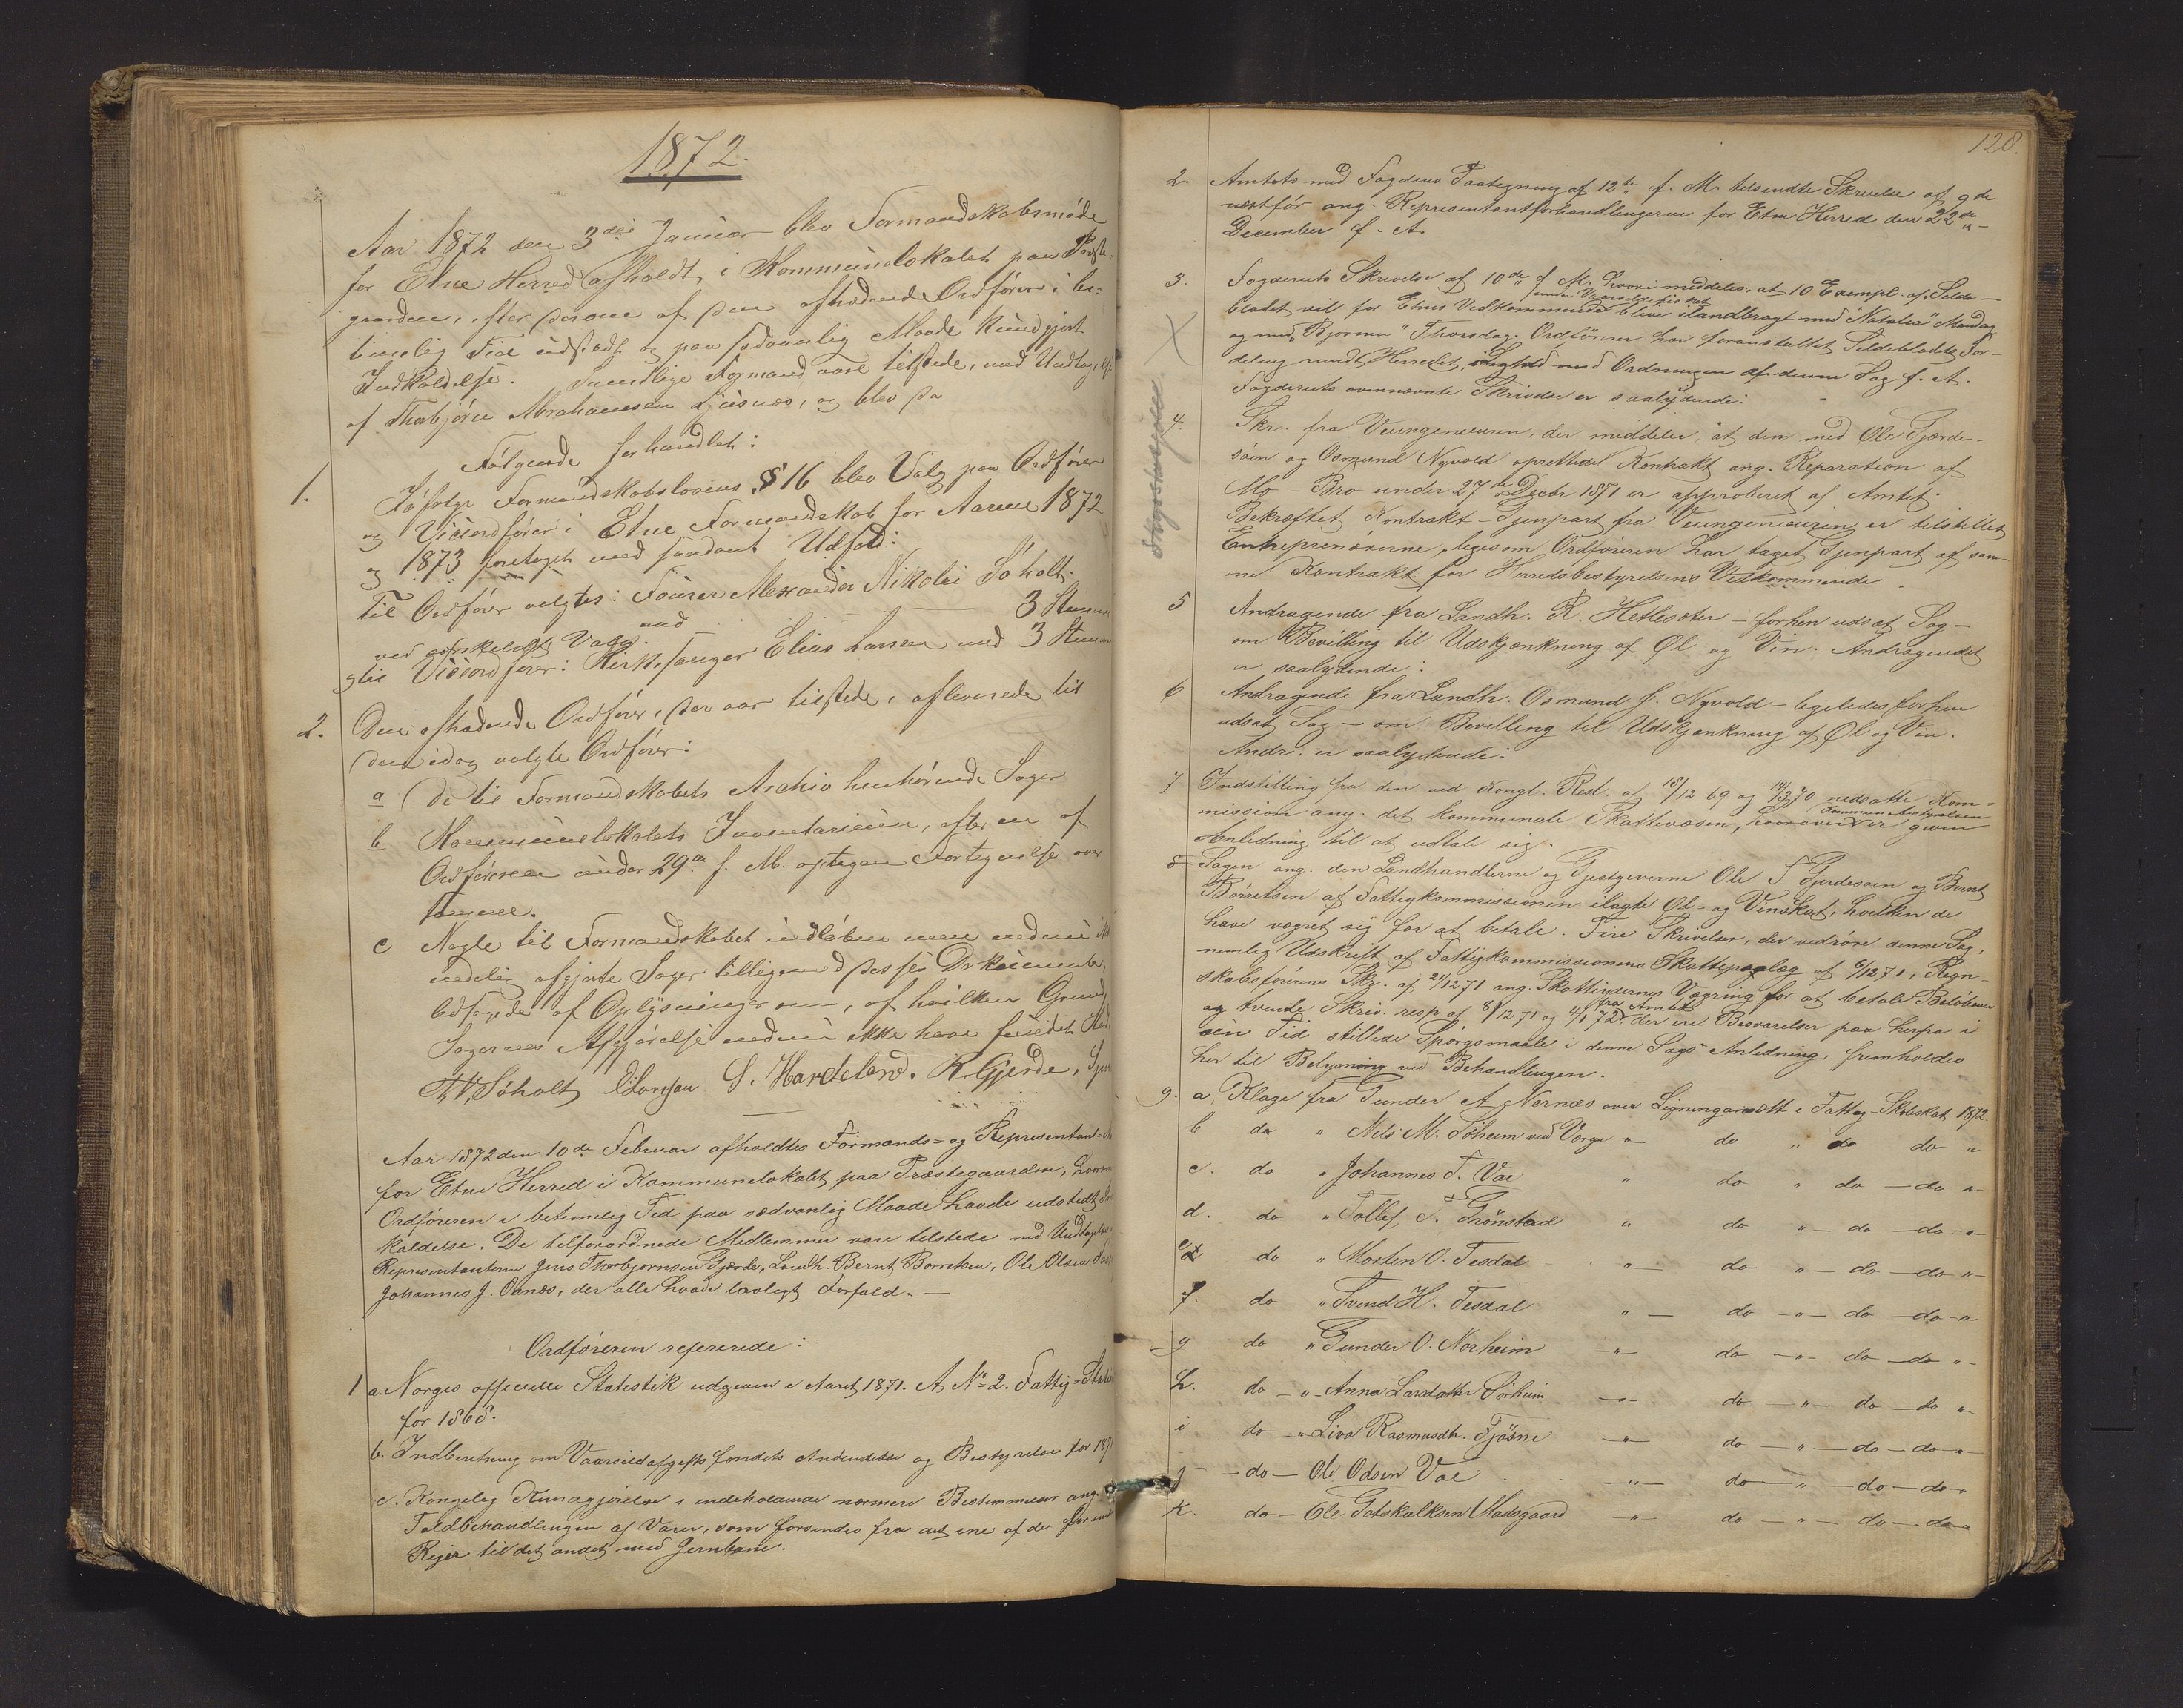 1872.
Aar 1872 den 3die Januar blev Formandskabsmöde
for Etne Herred afholdt i Kommunelokalet paa Præste-
gaarden, efter at den aftrædende Ordfører i be-
timelig Tid udstedt og paa sædvanlig Maade kundgjort
Indkaldelse. Samtlige Formænd vare tilstede, med Undtagelse
af Thorbjörn Abrahamsen Ljusnæs, og blev da
Følgende forhandlet:
1. Ifølge Formandskabslovens § 16 blev Valg paa Ordfører
og Viceordfører i Etne Formandskab for Aarene 1872
og 1873 foretaget med saadant Udfald:
Til Ordfører valgtes: Fourer Alexander Nikolai Söholt
ved omskeldt Valg med 3 Stemmer
og til Viceordfører: Kirkesanger Elias Larssen med 3 Stemmer
2. Den aftrædende Ordfører, der var tilstede, afleverede til
den idag valgte Ordfører:
a De til Formandskabets Archiv henhörende Sager
b Kommunelokalets Inventarium, efter en af
Ordføreren under 29de f. M. optagen Fortegnelse over
samme.
c Nogle til Formandskabet indløbne men endnu ikke
endelig afgjorte Sager tilligemed disses Dokumenter,
ledsagede af Oplysninger om, af hvilken Grund
Sagernes Afgjörelse endnu ikke have fundet Sted.
A. N. Söholt E Larssen S. Hardeland. R. Gjerde,
Aar 1872 den 10de Februar afholdtes Formands- og Representant-
for Etne Herred i Kommunelokalet paa Præstegaarden, hvortil
Ordføreren i betimelig Tid paa sædvanlig Maade havde udstedt
kaldelse. De tilforordnede Medlemmer vare tilstede med Undtagelse
Representanterne Jens Thorbjørnsen Gjerde, Landh. Bernt Børretsen, Ole Olsen
Johannes J. Osnæs, der alle havde lovligt Forfald. —
Ordføreren refererede:
1 a. Norges officielle Statistik udgiven i Aaret 1871. A No 2. Fattig-Statistik
for 1868.
b. Indberetning om Vaarsildafgiftsfondets Anvendelse og Bestyrelse for 187
c. Kongelig Kundgjörelse, indeholdende nærmere Bestemmelser ang.
Toldbehandlingen af Varer, som forsendes fra det ene af de forenede
Riger til det andet med Jernbane.
128.
2. Amtets med Fogdens Paategning af 12te f. M. tilsendte Skrivelse af 9de
næstför ang. Representantforhandlingerne for Etne Herred den 22de
December f. A.
3. Fogderiets Skrivelse af 10de f. M. hvori meddeles, at 10 Exempl. af Silde-
under Vaarsildefisket
bladet vil for Etnes Vedkommende blive ilandbragt med "Natalia" Mandag
og med "Bjørnen" Thorsdag. Ordføreren har foranstaltet Sildebladets For-
deling rundt Herredet, i Lighed med Ordningen af denne Sag f. A.
Fogderiets ovennævnte Skrivelse er saalydende:
Skydsstasjoner
4. Skr. fra Veiingeniøren, der meddeler, at den med Ole Gjerde-
søen og Osmund Nyvold oprettede Kontrakt ang. Reparation af
Mo-Bro under 27de Decbr 1871 er approberet af Amtet.
Bekræftet Kontrakt-Gjenpart fra Veiingeniøren er tilstillet
Entreprenørerne, ligesom Ordføreren har taget Gjenpart af sam-
me Kontrakt for Herredsbestyrelsens Vedkommende.
5 Andragende fra Landh. R. Hetlesæter – forhen udsat Sag –
om Bevilling til Udskjænkning af Øl og Vin. Andragendet
er saalydende:
6 Andragende fra Landh. Osmund J. Nyvold – ligeledes forhen
udsat Sag – om Bevilling til Udskjænkning af Øl og Vin.
Andr. er saalydende:
7 Indstilling fra den ved Kongl. Resl. af 18/12 69 og 14/3 70 nedsatte Kom-
Kommunebestyrelsen
mission ang. det kommunale Skattevæsen, hvorover er given
Anledning til at udtale sig.
8 Sagen ang. den Landhandlerne og Gjestgiverne Ole T. Gjerdesøen og Bernt
Børretsen af Fattigkommissionen ilagte Øl- og Vinskat, hvilken de
have vægret sig for at betale. Fire Skrivelser, der vedrøre denne Sag,
nemlig Udskrift af Fattigkommissionens Skattepaalæg af 6/12 71, Regn-
skabsførerens Skr. af 21/12 71 ang. Skattydernes Vægring for at betale Beløbene
fra Amtet
og tvende Skriv. resp af 8/12 71 og 4/1 72 der ere Besvarelser paa herfra i
sin Tid stillede Spørgsmaale i denne Sags Anledning, fremholdes
her til Belysning ved Behandlingen.
9. a, Klage fra Gunder A Nernæs over Ligningsansætt i Fattig-Skoleskat 1872.
b do " Nils M. Tøheim ved Værge " do " do do "
c. do " Johannes T. Vae " do " do – do "
d. do " Tollef T. Grönstad " do " – do – do "
e do " Morten O. Tesdal " – do " – do – do "
f. do " Svend H. Tesdal " – do – " – do – do "
g do " Gunder O. Norheim – " – do – " – do – do "
h. do – " – Anna Larsdatter Sørheim – " – do – " – do – do "
i do – " Liva Rasmusdtr. Fjösne – " – do – " – do – do "
j – do – Ole Odsen Vae – " – do – " – do – do "
k. do – Ole Gotskalksen Stadsgaard – " – do – " – do – do "